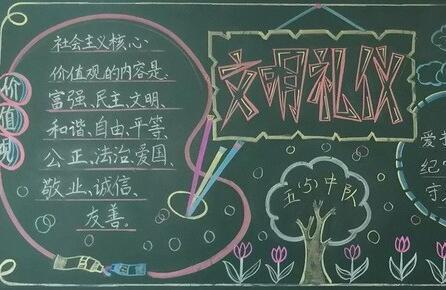 价值观
社会主义核心
价值观的内容是:
富强、民主、文明、
和谐、自由、平等、
公正、法治、爱国、
敬业、诚信、
友善。
文明礼仪
五(5)中队